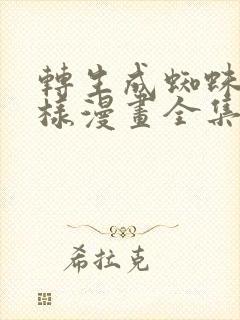 轉生成蜘蛛
樣漫畫全集
希拉克